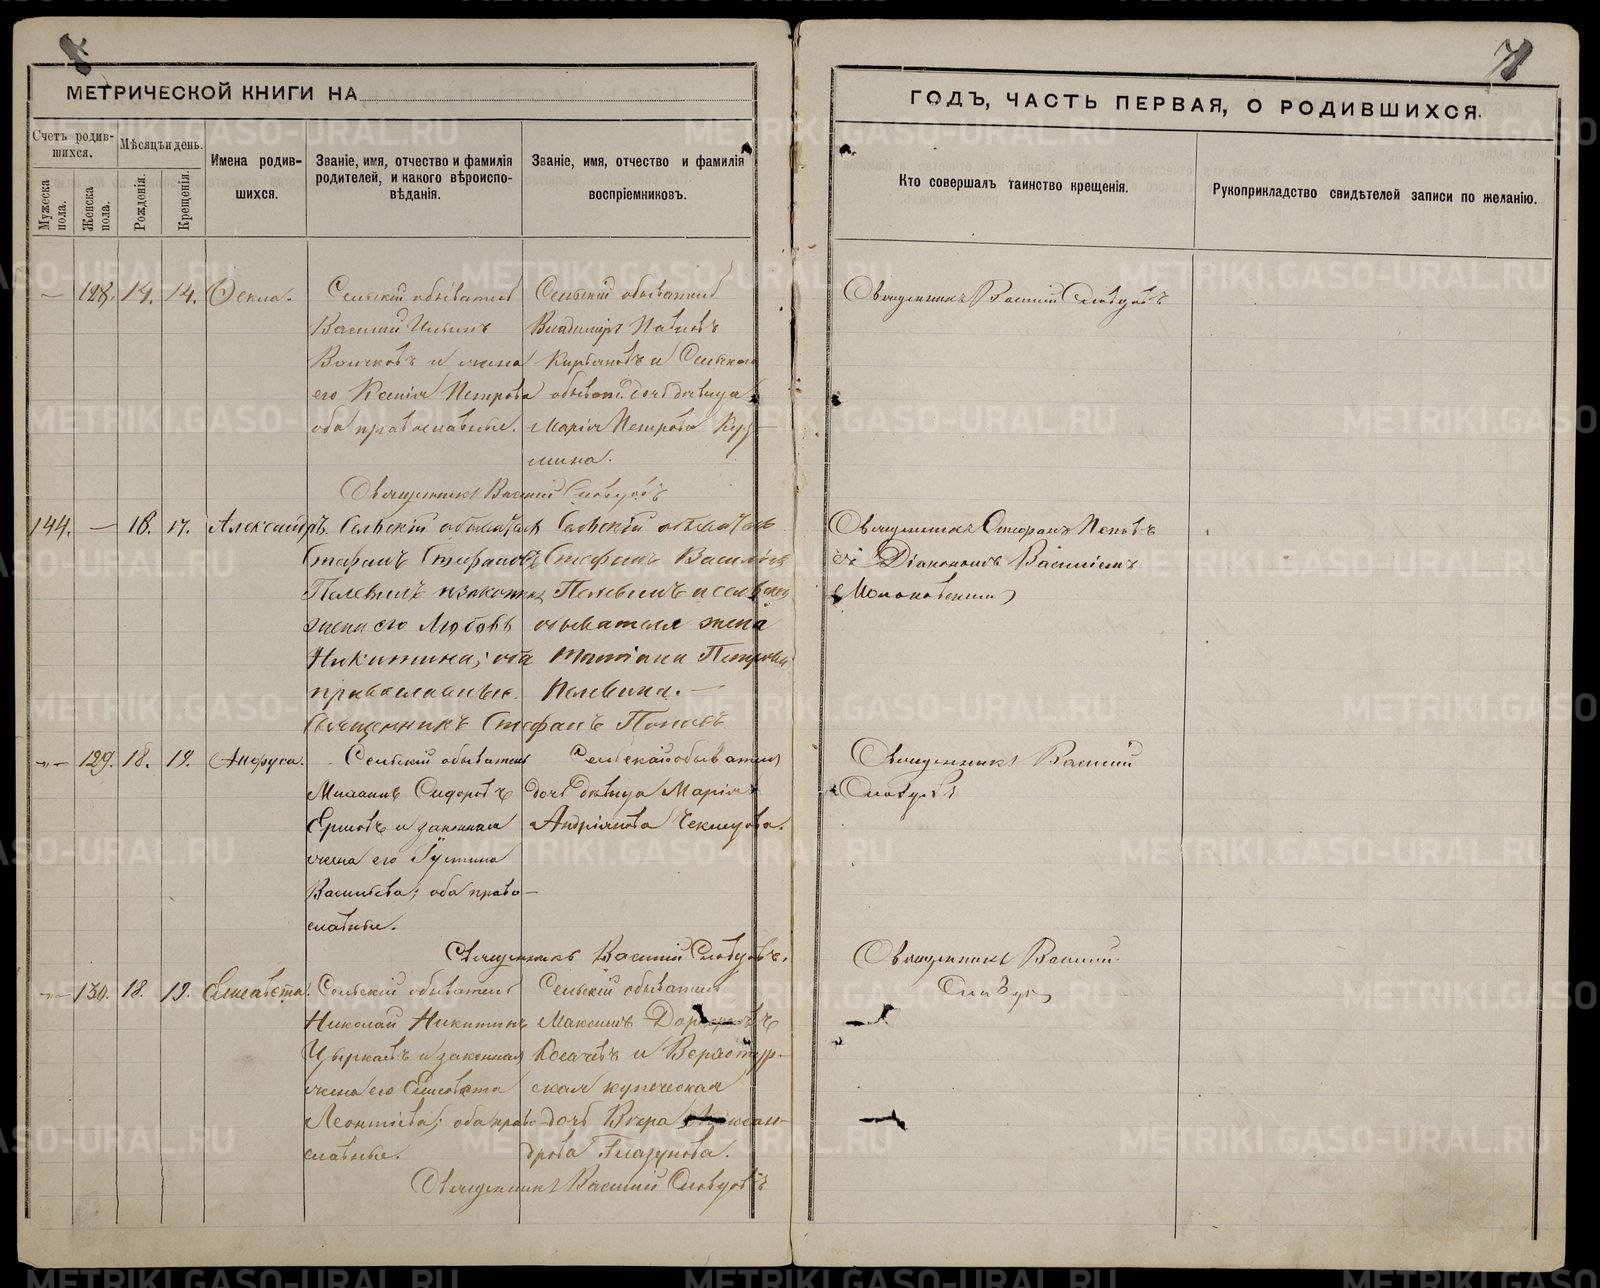 МЕТРИЧЕСКОЙ КНИГИ НА
ГОДЪ, ЧАСТЬ ПЕРВАЯ, О РОДИВШИХСЯ.
Счетъ родив-
шихся.
Мѣсяцъ и день.
Мужеска пола.
Женска пола.
Рожденія.
Крещенія.
Имена родив-
шихся.
Званіе, имя, отчество и фамилія
родителей, и какого вѣроиспо-
вѣданія.
Званіе, имя, отчество и фамилія
воспріемниковъ.
Кто совершалъ таинство крещенія.
Рукоприкладство свидѣтелей записи по желанію.
— 128. 14. 14. Ѳекла.
Сельскій обыватель
Василій Ильинъ
Волчковъ и жена
его Ксенія Петрова
оба православные.
Сельскій обыватель
Владиміръ Павловъ
Кирьяновъ и Сельскаго
обыват. дочь девица
Марія Петрова
Священникъ Василій Словцовъ
Священникъ Василій Словцовъ
144. — 18. 17. Александръ.
Сельскій обыватель
Стефанъ Стефановъ
Пелевинъ и законная
жена его Любовь
Никитина; оба
православные.
Сельскій обыватель
Стефанъ Васильевъ
Пелевинъ и сельскаго
обывателя жена
Татіана Петрова
Пелевина. —
Священникъ Стефанъ Поповъ
Священникъ Стефанъ Поповъ
съ Діакономъ Василіемъ
— 129. 18. 19. Анфуса.
Сельскій обыватель
Михаилъ Сидоровъ
Ершовъ и законная
жена его Іустина
Васильева; оба право-
славные.
Сельскаго обывателя
дочь девица Марія
Андріянова
Священникъ Василій Словцовъ.
Священникъ Василій
Словцовъ
— 130. 18. 19. Елисавета.
Сельскій обыватель
Николай Никитинъ
Цыркавъ и законная
жена его Елисавета
Леонтіева; оба право
славные.
Сельскій обыватель
Максимъ
Косачевъ и Верхотур-
ская купеческая
дочь Вѣра Александрова
Глазунова.
Священникъ Василій Словцовъ
Священникъ Василій
METRIKI.GASO-URAL.RU